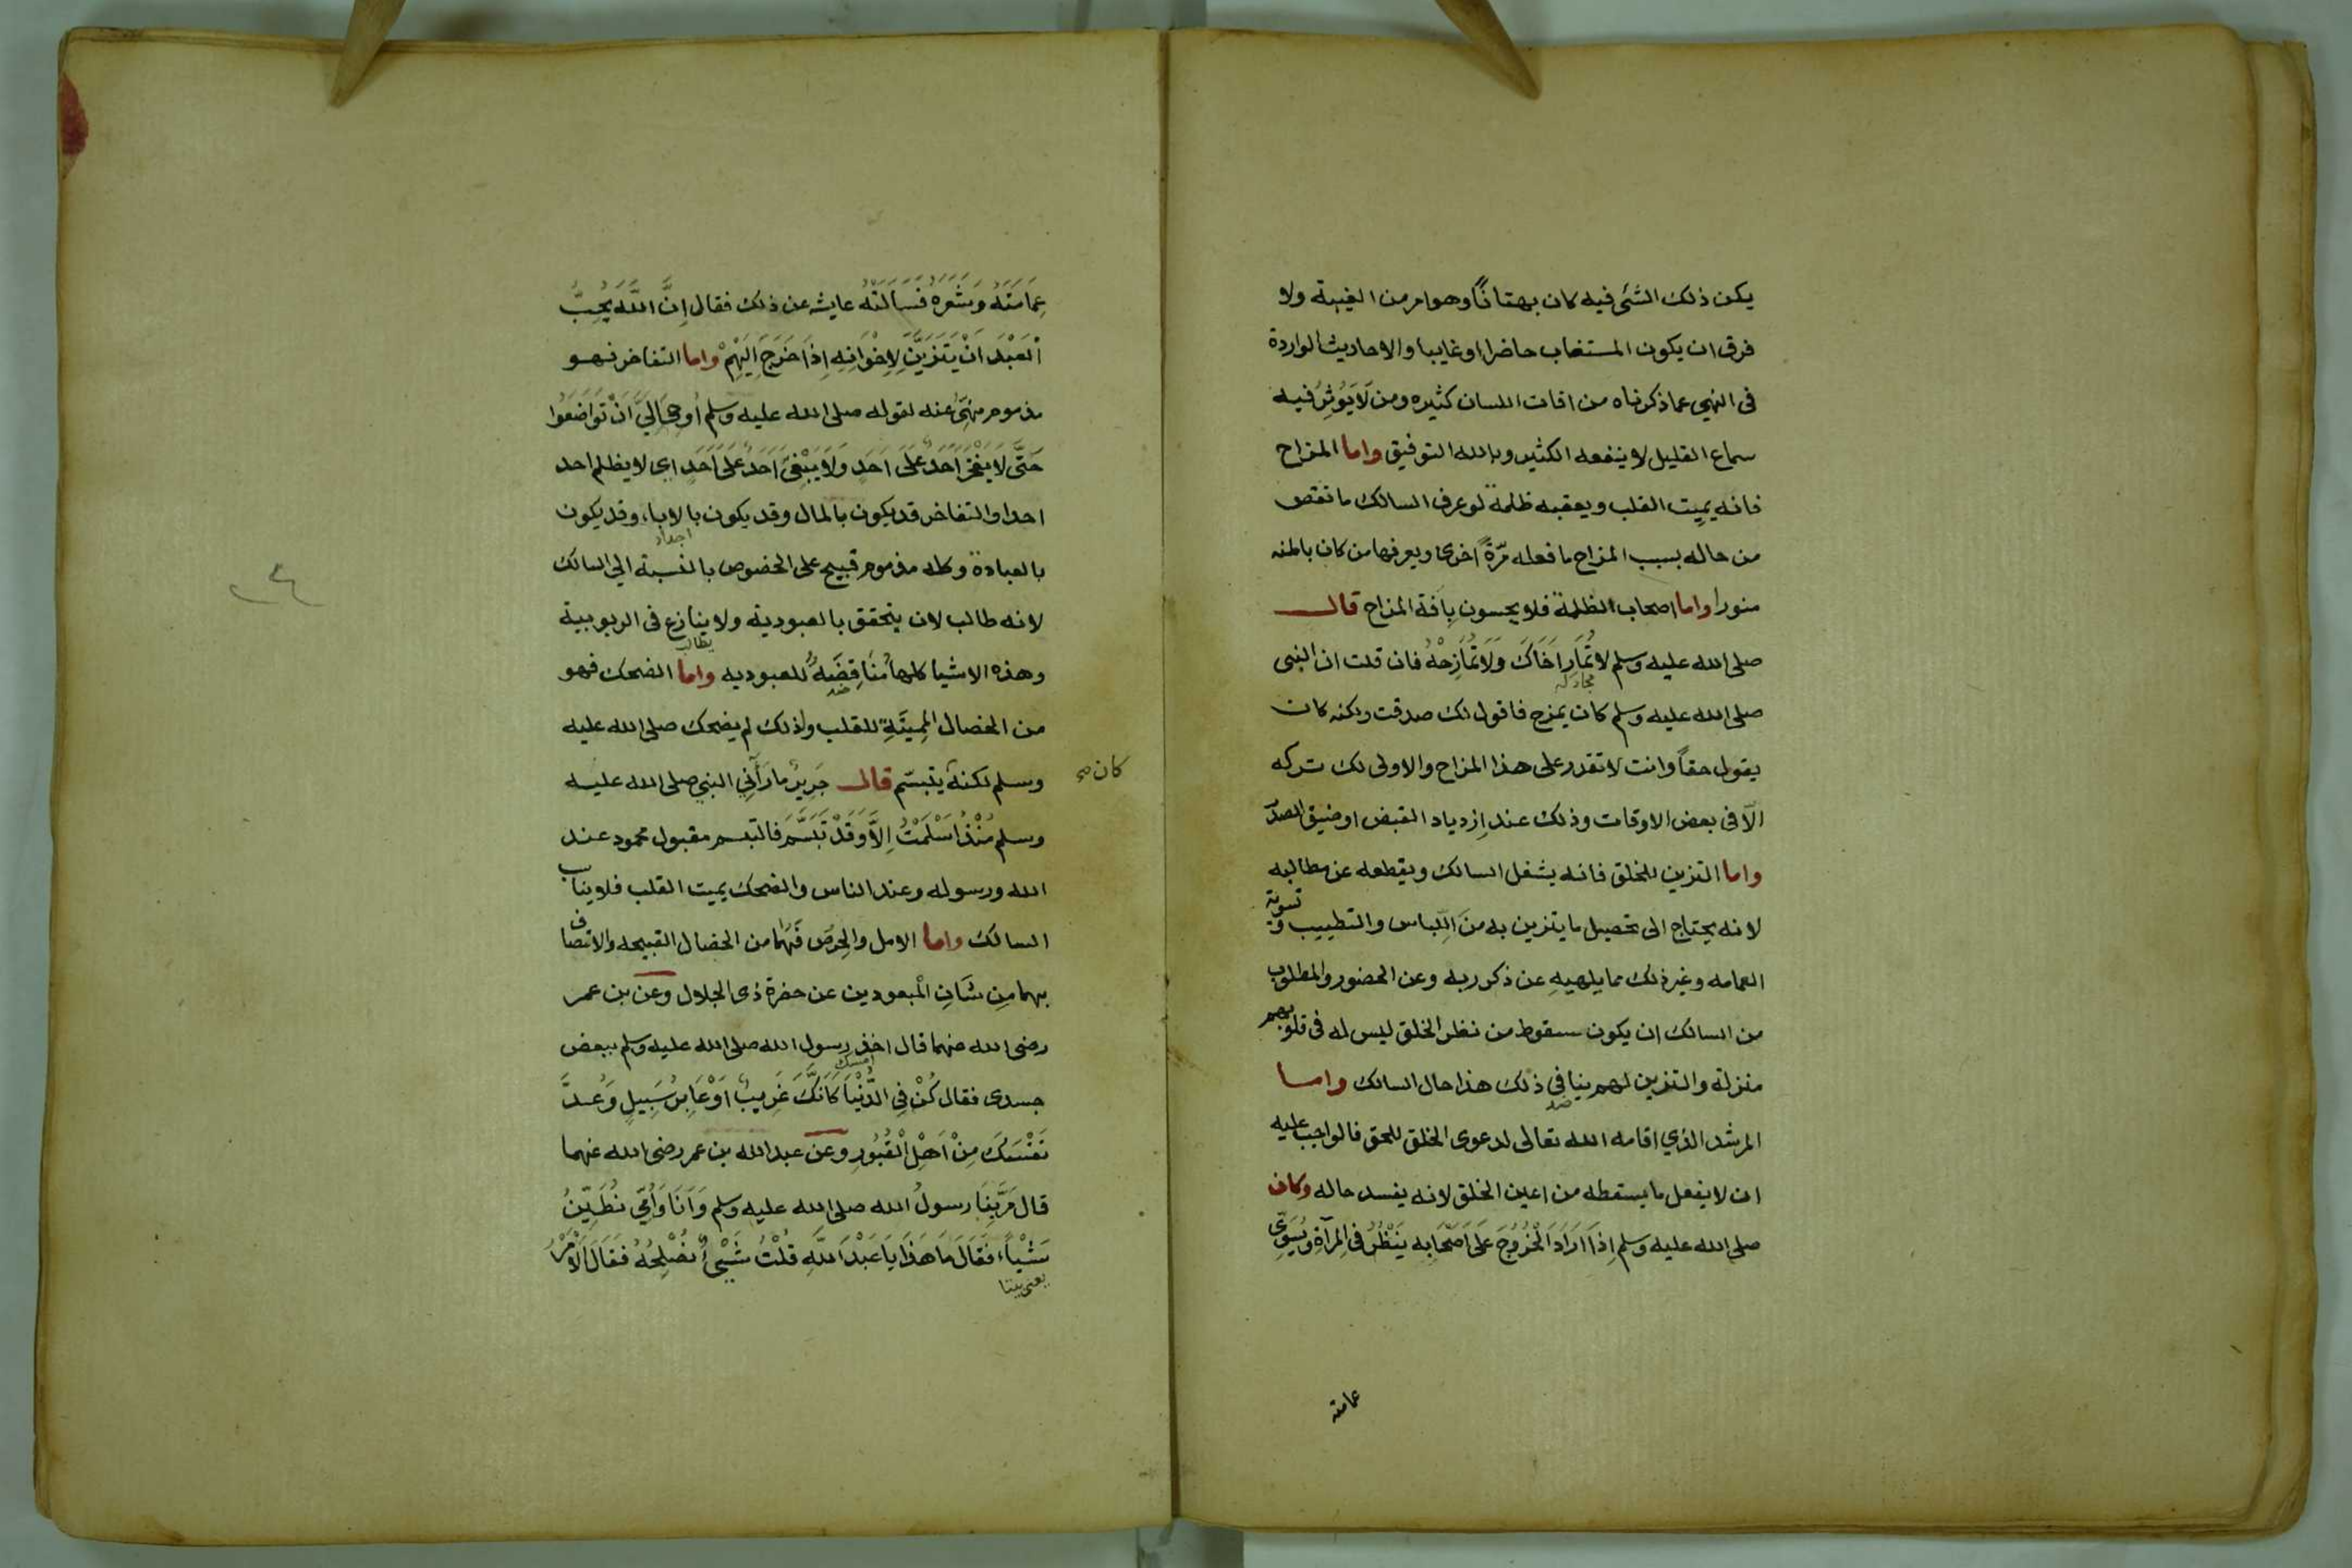 يكن ذلك الشئ فيه كان بهتانًا وهو امر من الغيبة ولا
فرق ان يكون المستغاب حاضرا او غايبا والاحاديث الواردة
فى النهي عما ذكرناه من افات اللسان كثيره ومن لَا يَوُثِرُ فيه
سماع القليل لا ينفعه الكثير وبالله التوفيق واما المزاح
فانه يميت القلب ويعقبه ظلمة لو عرف السالك ما نقص
من حاله بسبب المزاح ما فعله مّرةً اخرى ويعرفها من كان بالمنه
منورا واما اصحاب الظلمة فلا يحسون بآفة المزاح قال
صلى الله عليه وسلم لا تُمَارِ اَخَاكَ وَلَا تُمَازِحْهُ فان قلت ان النبى
مجادله
صلى الله عليه وسلم كان يمزح فاقول لك صدقت ولكنه كان
يقول حقاً وانت لا تقدر على هذا المزاح والاولى لك تركه
الّا فى بعض الاوقات وذلك عند اِزدياد القبض او ضيق الصدر
واما التزين للخلق فانه يشغل السالك ويقطعه عن مطالبه
لانه يحتاج الى تحصيل ما يتزين به مَن اللِّباس والتطييب وتسوية
العمامه وغير ذلك مما يلهيهِ عن ذكر ربه وعن الحضور والمطلوب
من السالك ان يكون سقوط من نظر الخلق ليس له فى قلوبهم
منزلة والتزين لهم ينافى ذلك هذا حال السالك واما
ضد
المرشد الذي اقامه الله تعالى لدعوى الخلق للحق فالواجب عليه
ان لا يفعل ما يسقطه من اعين الخلق لانه يفسد حاله وكان
صلى الله عليه وسلم اِذَا اَرَادَ الْخُرُوجَ عَلَى اَصْحَابِه يَنْظُرُ فى المِرآةِ ويُسَوِّى
عمامته
عِمَامَتَهُ وَشَعَرَهُ فَسَاَلَتْهُ عايشه عن ذلك فقال اِنَّ اللَّهَ يُحِبُّ
الْعَبْدَ اَنْ يَتَزَيَّنَ لِاِخْوَانِهِ اِذَا خَرَجَ اِلَيْهِمْ واما التفاخر فهو
مذموم منهىٌّ عنه لقوله صلى الله عليه وسلم اُوحِىَ اِلَيَّ اَنْ تَوَاضَعُوا
حَتَّى لَا يَفْخَرَ اَحَدٌ عَلَى اَحَدٍ وَلَا يَبْغِىَ اَحَدٌ عَلَى اَحَدٍ اى لا يظلم احد
احدا والتفاخر قد يكون بالمال وقد يكون بالاباء وقد يكون
اجداد
بالعبادة وكله مذموم قبيح على الخصوص بالنسبة الي السالك
لانه طالب لان يتحقق بالعبودية ولا ينازع فى الربوبية
يطالب
وهذه الاشيا كلها مُنَاقِضَةٌ للعبوديه واما الضحك فهو
ضد
من الخصال المِميتَةِ للقلب ولذلك لم يضحك صلى الله عليه
وسلم لكنهُ يتبسّم قال جَرِيرٌ ما رَآنِي النبي صلى الله عليه
كان صح
وسلم مُنْذُ اَسْلَمْتُ اِلاَّ وَقَدْ تَبَسَّمَ فالتبسم مقبول محمود عند
الله ورسوله وعند الناس والضحك يميت القلب فلا يناسب
السالك واما الامل والحِرصَ فَهُمَا من الخصال القبيحه والاتصاف
بهما مِن شَانِ الْمبعودين عن حضرة ذى الجلال وعن بن عمر
رضى الله عنهما قال اخذ رسول الله صلى الله عليه وسلم ببعض
امسك
جسدى فقال كُنْ فِى الدُّنْيَا كَاَنَّكَ غَرِيبٌ اَوْ عَابِرُ سَبِيلٍ وَعُدَّ
نَفْسَكَ مِنْ اَهْلِ الْقُبُورِ وعن عبد الله بن عمر رضى الله عنهما
قال مَرَّ بِنَا رسولُ الله صلى الله عليه وسلم وَاَنَا وَاُمِّى نُطَيِّنُ
شَيْئاً فَقَالَ مَا هَذَا يَا عَبْدَ اللَّهِ قُلْتُ شَيْئٌ نُصْلِحُهُ فَقَالَ اَلْاَمْرُ
يعنى بيتا